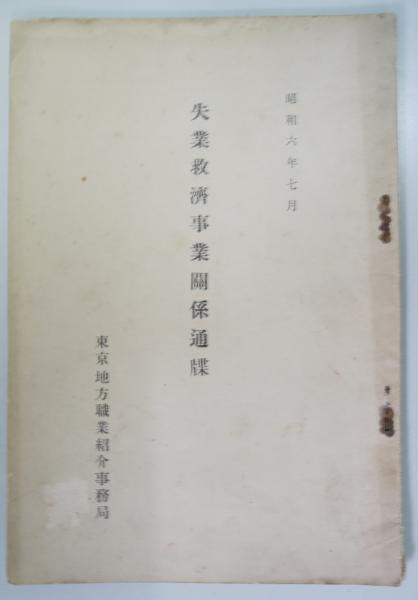 昭和六年七月
失業救濟事業關係通牒
東京地方職業紹介事務局